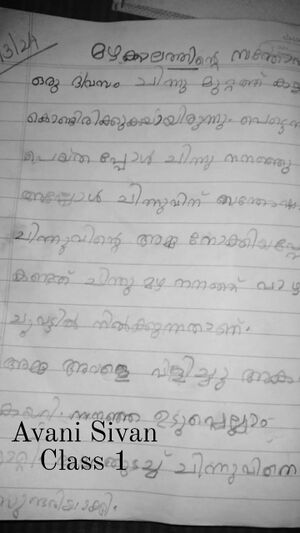 13/24
മഴക്കാലത്തിന്റെ സന്തോ
ഒരു ദിവസം ചിന്നു മുറ്റത്ത്
കൊണ്ടിരിക്കുകയായിരുന്നു. പെട്ടെ
പെയ്തപ്പോൾ ചിന്നു നനഞ്ഞു
അപ്പോൾ ചിന്നുവിന്
ചിന്നുവിന്റെ അമ്മ നോക്കിയപ്പോ
കണ്ടത് ചിന്നു മഴ നനഞ്ഞ് വാഴ
ചുവട്ടിൽ നിൽക്കുന്നതാണ്.
അമ്മ അവളെ വിളിച്ചു അക
നനഞ്ഞ ഉടുപ്പെല്ലാം
Avani Sivan
Class 1
ചിന്നുവിനെ
സുന്ദരിയാക്കി.